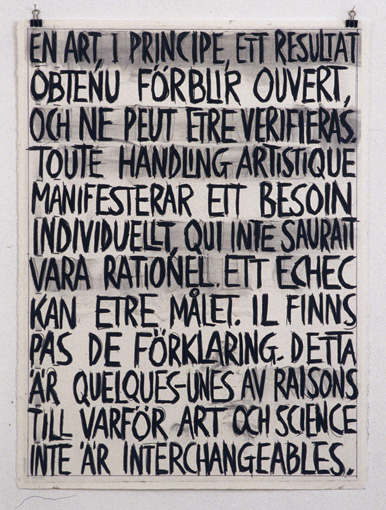 EN ART, I PRINCIPE, ETT RESULTAT
OBTENU FÖRBLIR OUVERT,
OCH NE PEUT ETRE VERIFIERAS.
TOUTE HANDLING ARTISTIQUE
MANIFESTERAR ETT BESOIN
INDIVIDUELLT, QUI INTE SAURAIT
VARA RATIONEL. ETT ECHEC
KAN ETRE MÅLET. IL FINNS
PAS DE FÖRKLARING. DETTA
ÄR QUELQUES-UNES AV RAISONS
TILL VARFÖR ART OCH SCIENCE
INTE ÄR INTERCHANGEABLES.